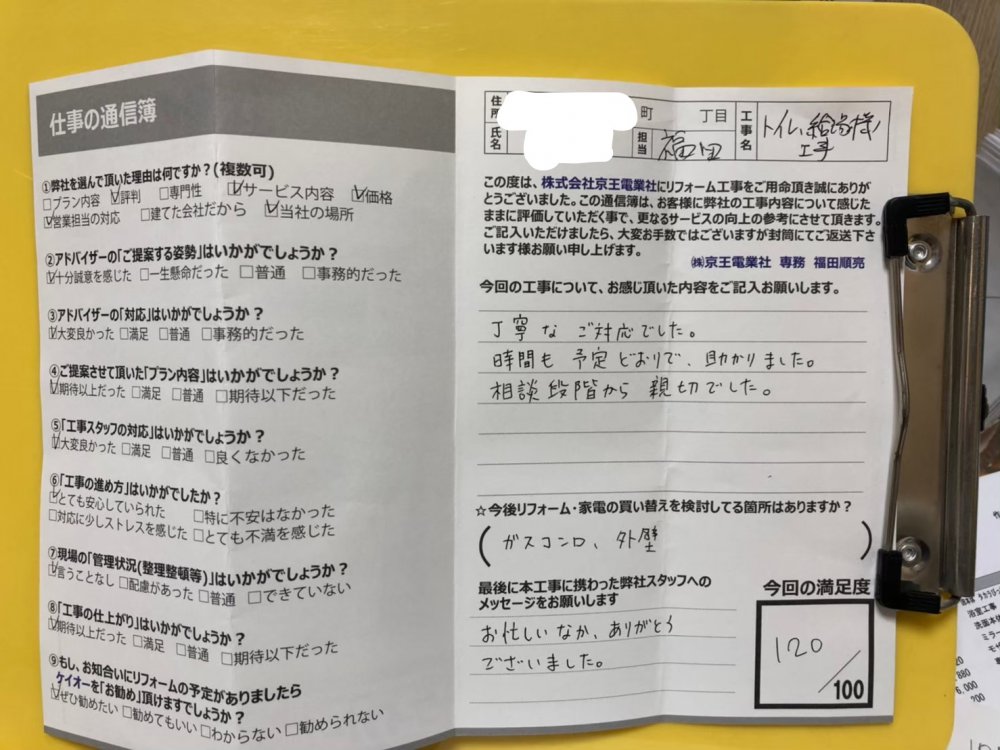 仕事の通信簿
①弊社を選んで頂いた理由は何ですか?(複数可)
□プラン内容 ☑評判 □専門性 ☑サービス内容 ☑価格
☑営業担当の対応 □建てた会社だから ☑当社の場所
②アドバイザーの「ご提案する姿勢」はいかがでしょうか?
☑十分誠意を感じた □一生懸命だった □普通 □事務的だった
③アドバイザーの「対応」はいかがでしょうか?
☑大変良かった □満足 □普通 □事務的だった
④ご提案させて頂いた「プラン内容」はいかがでしょうか?
☑期待以上だった □満足 □普通 □期待以下だった
⑤「工事スタッフの対応」はいかがでしょうか?
☑大変良かった □満足 □普通 □良くなかった
⑥「工事の進め方」はいかがでしたか?
☑とても安心していられた □特に不安はなかった
□対応に少しストレスを感じた □とても不満を感じた
⑦現場の「管理状況(整理整頓等)」はいかがでしょうか?
☑言うことなし □配慮があった □普通 □できていない
⑧「工事の仕上がり」はいかがでしょうか?
☑期待以上だった □満足 □普通 □期待以下だった
⑨もし、お知合いにリフォームの予定がありましたら
ケイオーを「お勧め」頂けますでしょうか?
☑ぜひ勧めたい □勧めてもいい □わからない □勧められない
住所 町 丁目
氏名 担当 福田
工事名 トイレ、給湯器
工事
この度は、株式会社京王電業社にリフォーム工事をご用命頂き誠にありが
とうございました。この通信簿は、お客様に弊社の工事内容について感じた
ままに評価していただく事で、更なるサービスの向上の参考にさせて頂きます。
ご記入いただけましたら、大変お手数ではございますが封筒にてご返送下さ
います様お願い申し上げます。
㈱京王電業社 専務 福田順亮
今回の工事について、お感じ頂いた内容をご記入お願いします。
丁寧なご対応でした。
時間も予定どおりで、助かりました。
相談段階から親切でした。
☆今後リフォーム・家電の買い替えを検討してる箇所はありますか?
(ガスコンロ、外壁)
最後に本工事に携わった弊社スタッフへの
メッセージをお願いします
お忙しいなか、ありがとう
ございました。
今回の満足度
120
/100
浴室工事
洗面本体
ミラー
880
6,000
200